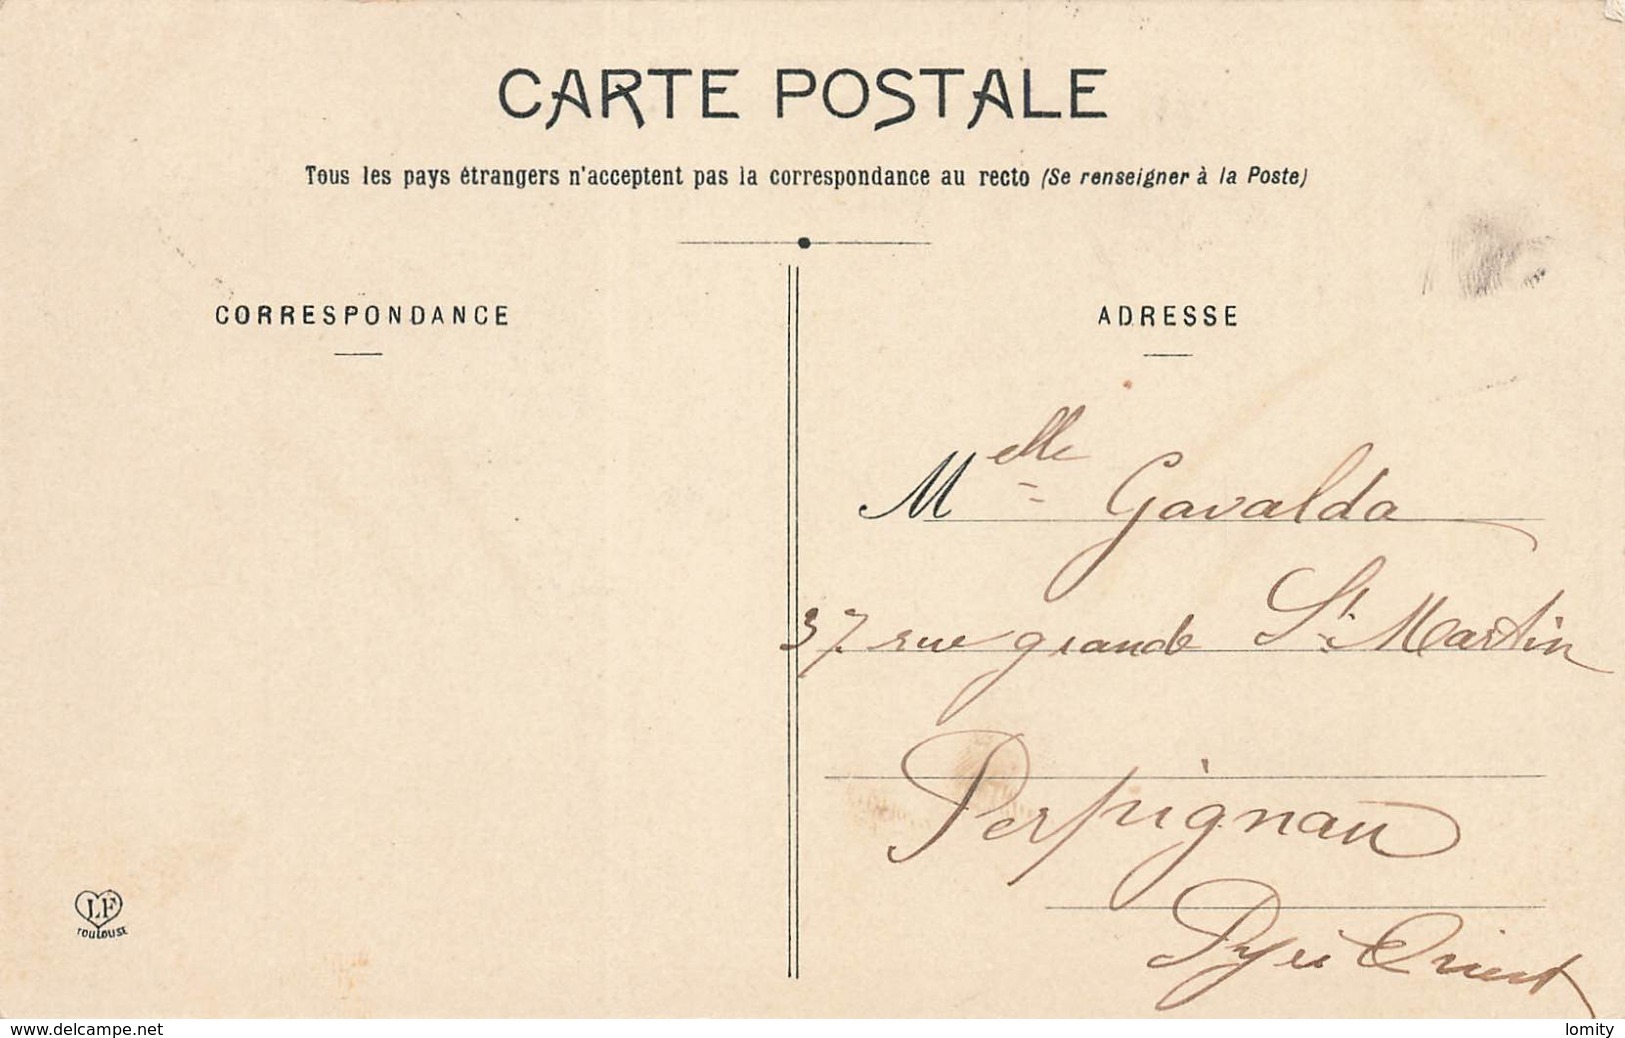 CARTE POSTALE
Tous les pays étrangers n'acceptent pas la correspondance au recto (Se renseigner à la Poste)
CORRESPONDANCE
ADRESSE
Melle Gavalda
37. rue grande St Martin
Perpignan
Pyrs Orient
LF
TOULOUSE
www.delcampe.net
lomity